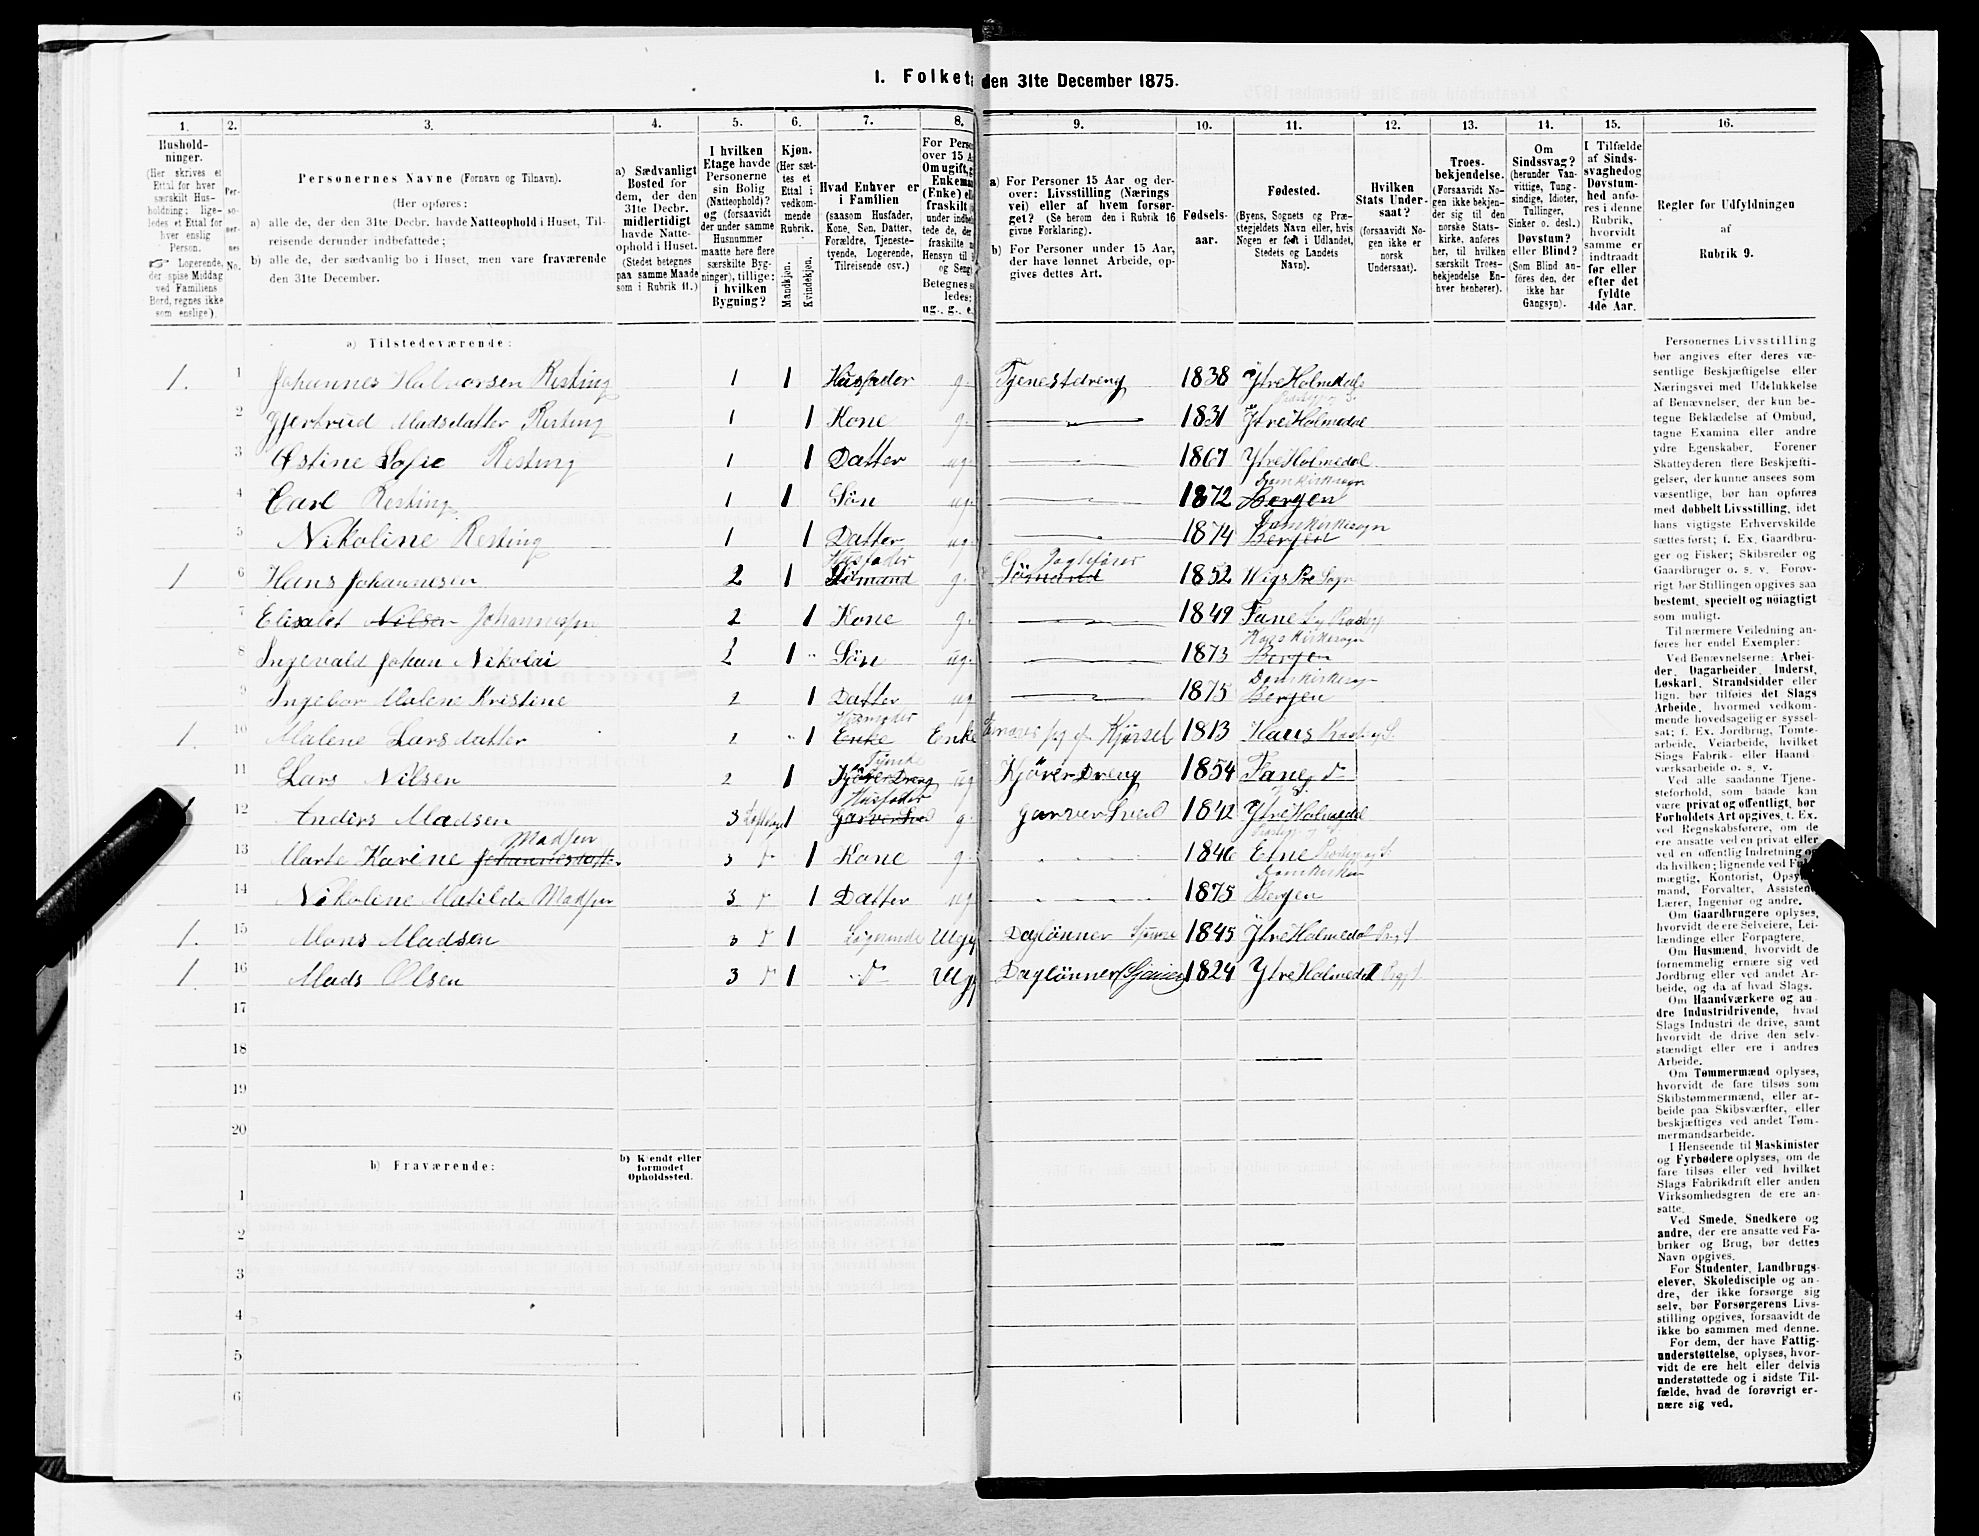 1. Folket den 31te December 1875.
1. 2. 3. 4. 5. 6. 7. 8. 9. 10. 11. 12. 13. 14. 15. 16.
Hushold-
ninger.
(Her skrives et
Ettal for hver
særskilt Hus-
holdning; lige-
ledes et Ettal for
hver enslig
Person.
☞ Logerende,
der spise Middag
ved Familiens
Bord, regnes ikke
som enslige).
Per-
so-
ner-
nes
No.
Personernes Navne (Fornavn og Tilnavn).
(Her opføres:
a) alle de, der den 31te Decbr. havde Natteophold i Huset, Til-
reisende derunder indbefattede;
b) alle de, der sædvanlig bo i Huset, men vare fraværende
den 31te December.
a) Sædvanligt
Bosted for
dem, der den
31te Decbr.
midlertidigt
havde Natte-
ophold i Huset.
(Stedet betegnes
paa samme Maade
som i Rubrik 11.)
I hvilken
Etage havde
Personerne
sin Bolig
(Natteophold)?
og (forsaavidt
der under samme
Husnummer
maatte høre flere
særskilte Byg-
ninger), tillige:
i hvilken
Bygning?
Kjøn.
(Her sæt-
tes et
Ettal i
vedkom-
mende
Rubrik.
Mandkjøn.
Kvindekjøn.
Hvad Enhver er
i Familien
(saasom Husfader,
Kone, Søn, Datter,
Forældre, Tjeneste-
tyende, Logerende,
Tilreisende osv.)
For Perso
over 15 A
Om ugift, g
Enkem
(Enke) el
fraskilt
under indbe
tede de, der
fraskilte
Hensyn til
og Seng
Betegnes s
ledes:
ug., g., e.
a) For Personer 15 Aar og der-
over: Livsstilling (Nærings
vei) eller af hvem forsør-
get? (Se herom den i Rubrik 16
givne Forklaring).
b) For Personer under 15 Aar,
der have lønnet Arbeide, op-
gives dettes Art.
Fødsels-
aar.
Fødested.
(Byens, Sognets og Præ-
stegjeldets Navn eller, hvis
Nogen er født i Udlandet,
Stedets og Landets
Navn).
Hvilken
Stats Under-
saat?
(forsaavidt No-
gen ikke er
norsk
Undersaat).
Troes-
bekjendelse.
(Forsaavidt No-
gen ikke bekjen-
der sig til den
norske Stats-
kirke, anføres
her, til hvilken
særskilt Troes-
bekjendelse En-
hver henhører).
Om
Sindssvag?
(herunder Van-
vittige, Tung-
sindige, Idioter,
Tullinger,
Sinker o. desl.)
Døvstum?
eller Blind?
(Som Blind an-
føres den, der
ikke har
Gangsyn).
I Tilfælde
af Sinds-
svaghed og
Døvstum-
hed anfø-
res i denne
Rubrik,
hvorvidt
samme er
indtraadt
før eller
efter det
fyldte
4de Aar.
Regler for Udfyldningen
af
Rubrik 9.
a) Tilstedeværende:
1. 1 Johannes Halvorsen Risting 1 1 Husfader g. Tjenestdreng 1838 Ytre Holmedal
2 Gjertrud Madsdatter Risting 1 1 Kone g. 1831 Ytre Holmedal
3 Østine Sofie Risting 1 1 Datter ug. 1867 Ytre Holmedal
Domkirkesogn
4 Carl Risting 1 1 Søn ug. 1872 Bergen
Domkirkesogn
5 Nikoline Risting 1 1 Datter ug. 1874 Bergen
Husfader
1 6 Hans Johannesen 2 1 Sömand g. Sömand 1852
7 Elisabet Nilsen Johannesen 2 1 Kone g. 1849 Fane
Korskirkesogn
8 Ingevald Johan Nikolai 2 1 Søn ug. 1873 Bergen
Domkirkesogn
9 Ingebor Malene Kristine 2 1 Datter ug. 1875 Bergen
Husmoder
1. 10 Malene Larsdatter 2 1 Enke Enke Kjørsel 1813 Haus
11 Lars Nilsen 2 1 ug. Kjörer Dreng 1854 Fane
Husfader
12 Anders Madsen 3 1 Garversvend g. Garver Svend 1842 Ytre Holmedal
Madsen
13 Marte Karine Johannesdatter 3 1 Kone g. 1846 Etne
Domkirken
14 Nikoline Matilde Madsen 3 1 Datter ug. 1875 Bergen
1. 15 Mons Madsen 3 1 Logerende Ugg Daglönner 1845 Ytre Holmedal
1 16 Mads Olsen 3 1 Ugg Daglönner 1824 Ytre Holmedal
17
18
19
20
b) Fraværende:
b) Kjendt eller
formodet
Opholdssted.
1
2
3
4
5
6
Personernes Livsstilling
bør angives efter deres væ-
sentlige Beskjæftigelse eller
Næringsvei med Udelukkelse
af Benævnelser, der kun be-
tegne Beklædelse af Ombud,
tagne Examina eller andre
ydre Egenskaber. Forener
Skatteyderen flere Beskjæfti-
gelser, der kunne ansees som
væsentlige, bør han opføres
med dobbelt Livsstilling, idet
hans vigtigste Erhvervskilde
sættes først; f. Ex. Gaardbru-
ger og Fisker; Skibsreder og
Gaardbruger o. s. v. Forøv-
rigt bør Stillingen opgives saa
bestemt, specielt og nöiagtigt
som muligt.
Til nærmere Veiledning an-
føres her endel Exempler:
Ved Benævnelserne: Arbei-
der, Dagarbeider, Inderst,
Løskarl, Strandsidder eller
lign. bør tilføies det Slags
Arbeide, hvormed vedkom-
mende hovedsagelig er syssel-
sat; f. Ex. Jordbrug, Tomte-
arbeide, Veiarbeide, hvilket
Slags Fabrik- eller Haand-
værksarbeide o. s. v.
Ved alle saadanne Tjene-
steforhold, som baade kan
være privat og offentligt, bør
Forholdets Art opgives, t. Ex.
ved Regnskabsførere, om de
ere ansatte ved en privat eller
ved en offentlig Indretning og
da hvilken; lignende ved Ful-
mægtig, Kontorist, Opsyns-
mand, Forvalter, Assistent,
Lærer, Ingeniør og andre.
Om Gaardbrugere oplyses,
hvorvidt de ere Selveiere, Lei-
lændinge eller Forpagtere.
Om Husmænd, hvorvidt de
fornemmelig ernære sig ved
Jordbrug eller ved andet Ar-
beide, og da af hvad Slags.
Om Haandværkere og an-
dre Industridrivende, hvad
Slags Industri de drive, samt
hvorvidt de drive den selv-
stændigt eller ere i andres
Arbeide.
Om Tømmermænd oplyses,
hvorvidt de fare tilsøs som
Skibstømmermænd, eller ar-
beide paa Skibsværfter, eller
beskjæftiges ved andet Tøm-
mermandsarbeide.
I Henseende til Maskinister
og Fyrbødere oplyses, om de
fare tilsøs eller ved hvilket
Slags Fabrikdrift eller anden
Virksomhedsgren de ere an-
satte.
Ved Smede, Snedkere og
andre, der ere ansatte ved Fa-
briker og Brug, bør dettes
Navn opgives.
For Studenter, Landbrugs-
elever, Skoledisciple og an-
dre, der ikke forsørge sig
selv, bør Forsørgerens Livs-
stilling opgives, forsaavidt de
ikke bo sammen med denne.
For dem, der have Fattig-
understøttelse, oplyses, hvor-
vidt de ere helt eller delvis
understøttede og i sidste Til-
fælde, hvad de forøvrigt er-
nære sig ved.